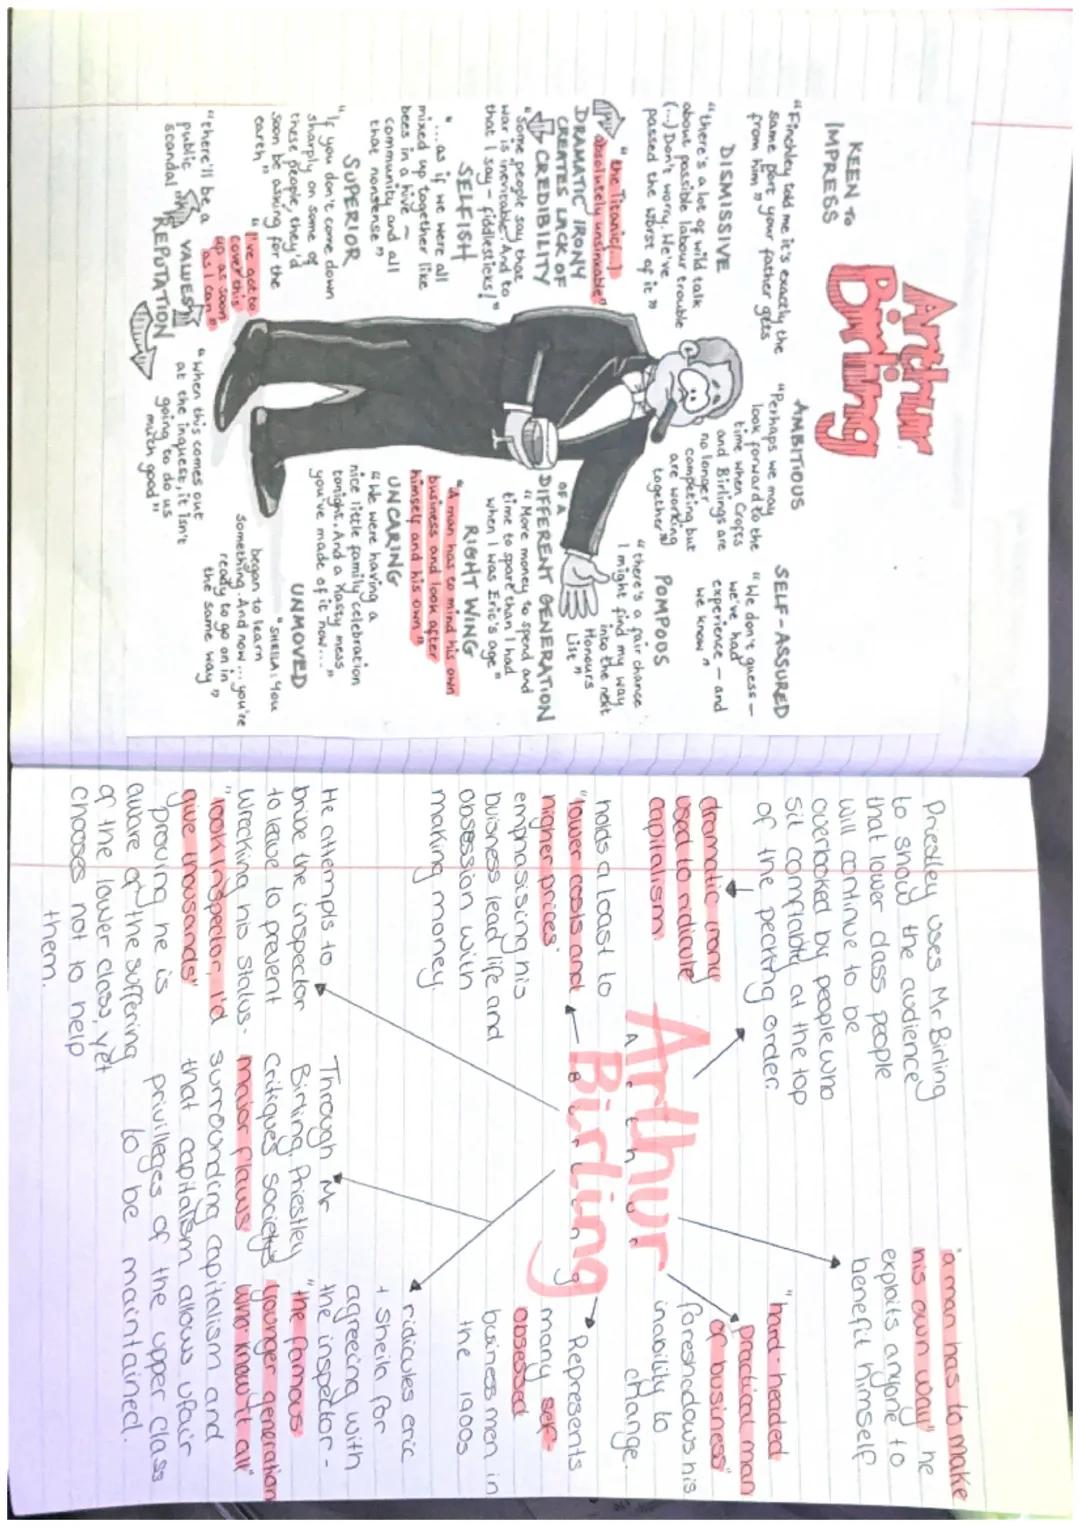 Arthur
Birling
KEEN TO
IMPRESS
"Finchley told me it's exactly the
same port your father gets
from him"
AMBITIOUS
"Perhaps we may
look forward to the
time when Crofts
and Birlings are
no longer
competing but
are working
together"
SELF-ASSURED
"We don't guess –
we've had
experience – and
we know"
DISMISSIVE
"there's a lot of wild talk
about possible labour trouble
(...) Don't worry. We've
passed the worst of it"
POMPOUS
"there's a fair chance
I might find my way
into the next
Honours
List"
"the Titanic(...)
absolutely unsinkable"
DRAMATIC IRONY
CREATES LACK OF
CREDIBILITY
"Some people say that
war is inevitable. And to
that I say – fiddlesticks!"
OF A
DIFFERENT GENERATION
"More money to spend and
time to spare than I had
when I was Eric's age"
SELFISH
"...as if we were all
mixed up together like
bees in a hive –
community and all
that nonsense"
RIGHT WING
"A man has to mind his own
business and look after
himself and his own"
SUPERIOR
"If you don't come down
sharply on some of
these people, they'd
soon be asking for the
earth"
UNCARING
"We were having a
nice little family celebration
tonight. And a nasty mess
you've made of it now..."
"I've got to
cover this
up as soon
as I can"
UNMOVED
"SHEILA: You
began to learn
something. And now... you're
ready to go on in
the same way"
VALUES
REPUTATION
"there'll be a
public
scandal"
"when this comes out
at the inquest, it isn't
going to do us
much good"
Priestley uses Mr Birling
to show the audience
that lower class people
will continue to be
overlooked by people who
sit comfatably at the top
of the pecking order.
"a man has to make
his own way" he
exploits anyone to
benefit himself
dramatic irony
used to ridicule
capitalism.
"hard-headed
practical man
of business"
foreshadows his
inability to
change.
Arthur
Arthur
Birling
Birling
holds a toast to
"lower costs and
higher prices"
emphasising his
buisness lead life and
obsession with
making money.
Represents
many self-
obsessed
business men in
the 1900s
ridicules eric
+ Sheila for
agreeing with
the inspector -
"the famous
younger generation
who know it all"
He attempts to
bribe the inspector
to leave to prevent
wrecking his status -
"look inspector, I'd
give thousands"
proving he is
aware of the suffering
of the lower class, yet
chooses not to help
them.
Through Mr
Birling, Priestley
critiques society's
major flaws
surrounding capitalism and
that capitalism allows ufair
privilleges of the upper class
to be maintained.